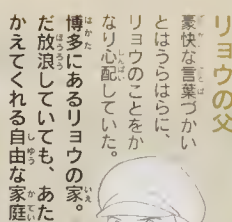 リョウの父
豪快な言葉づかい
とはうらはらに、
リョウのことをか
なり心配していた。
博多にあるリョウの家。
だ放浪していても、あた
かえてくれる自由な家庭